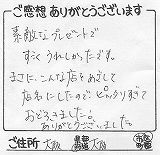 ご感想ありがとうございます
素敵なプレゼントで
すごくうれしかったです。
まさに、こんな店をめざして
店名にしたので ビックリすぎて
おどろきました。
ありがとうございました。
ご住所 大阪 都道府県 大阪 市